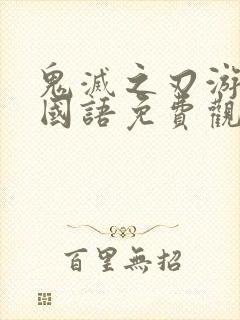 鬼滅之刃游
國語免費觀
百里無招